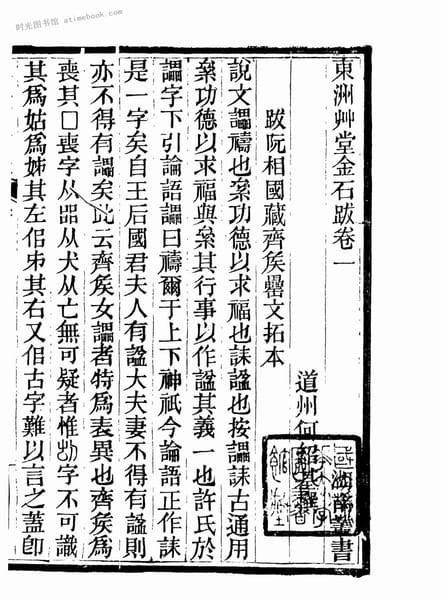 时光图书馆 atimebook.com
東洲艸堂金石跋卷一
道州何紹基譔
湖南叢書
跋阮相國藏齊矦罍文拓本
說文讄禱也桒功德以求福也誄謚也按讄誄古通用
桒功德以求福與桒其行事以作謚其義一也許氏於
讄字下引論語讄曰禱爾于上下神祇今論語正作誄
是一字矣自王后國君夫人有謚大夫妻不得有謚則
亦不得有讄矣此云齊矦女讄者特爲表異也齊矦爲
喪其□喪字从㗊从犬从亡無可疑者惟 字不可識
其爲姑爲姊其左佀 其右又佀古字難以言之蓋卽